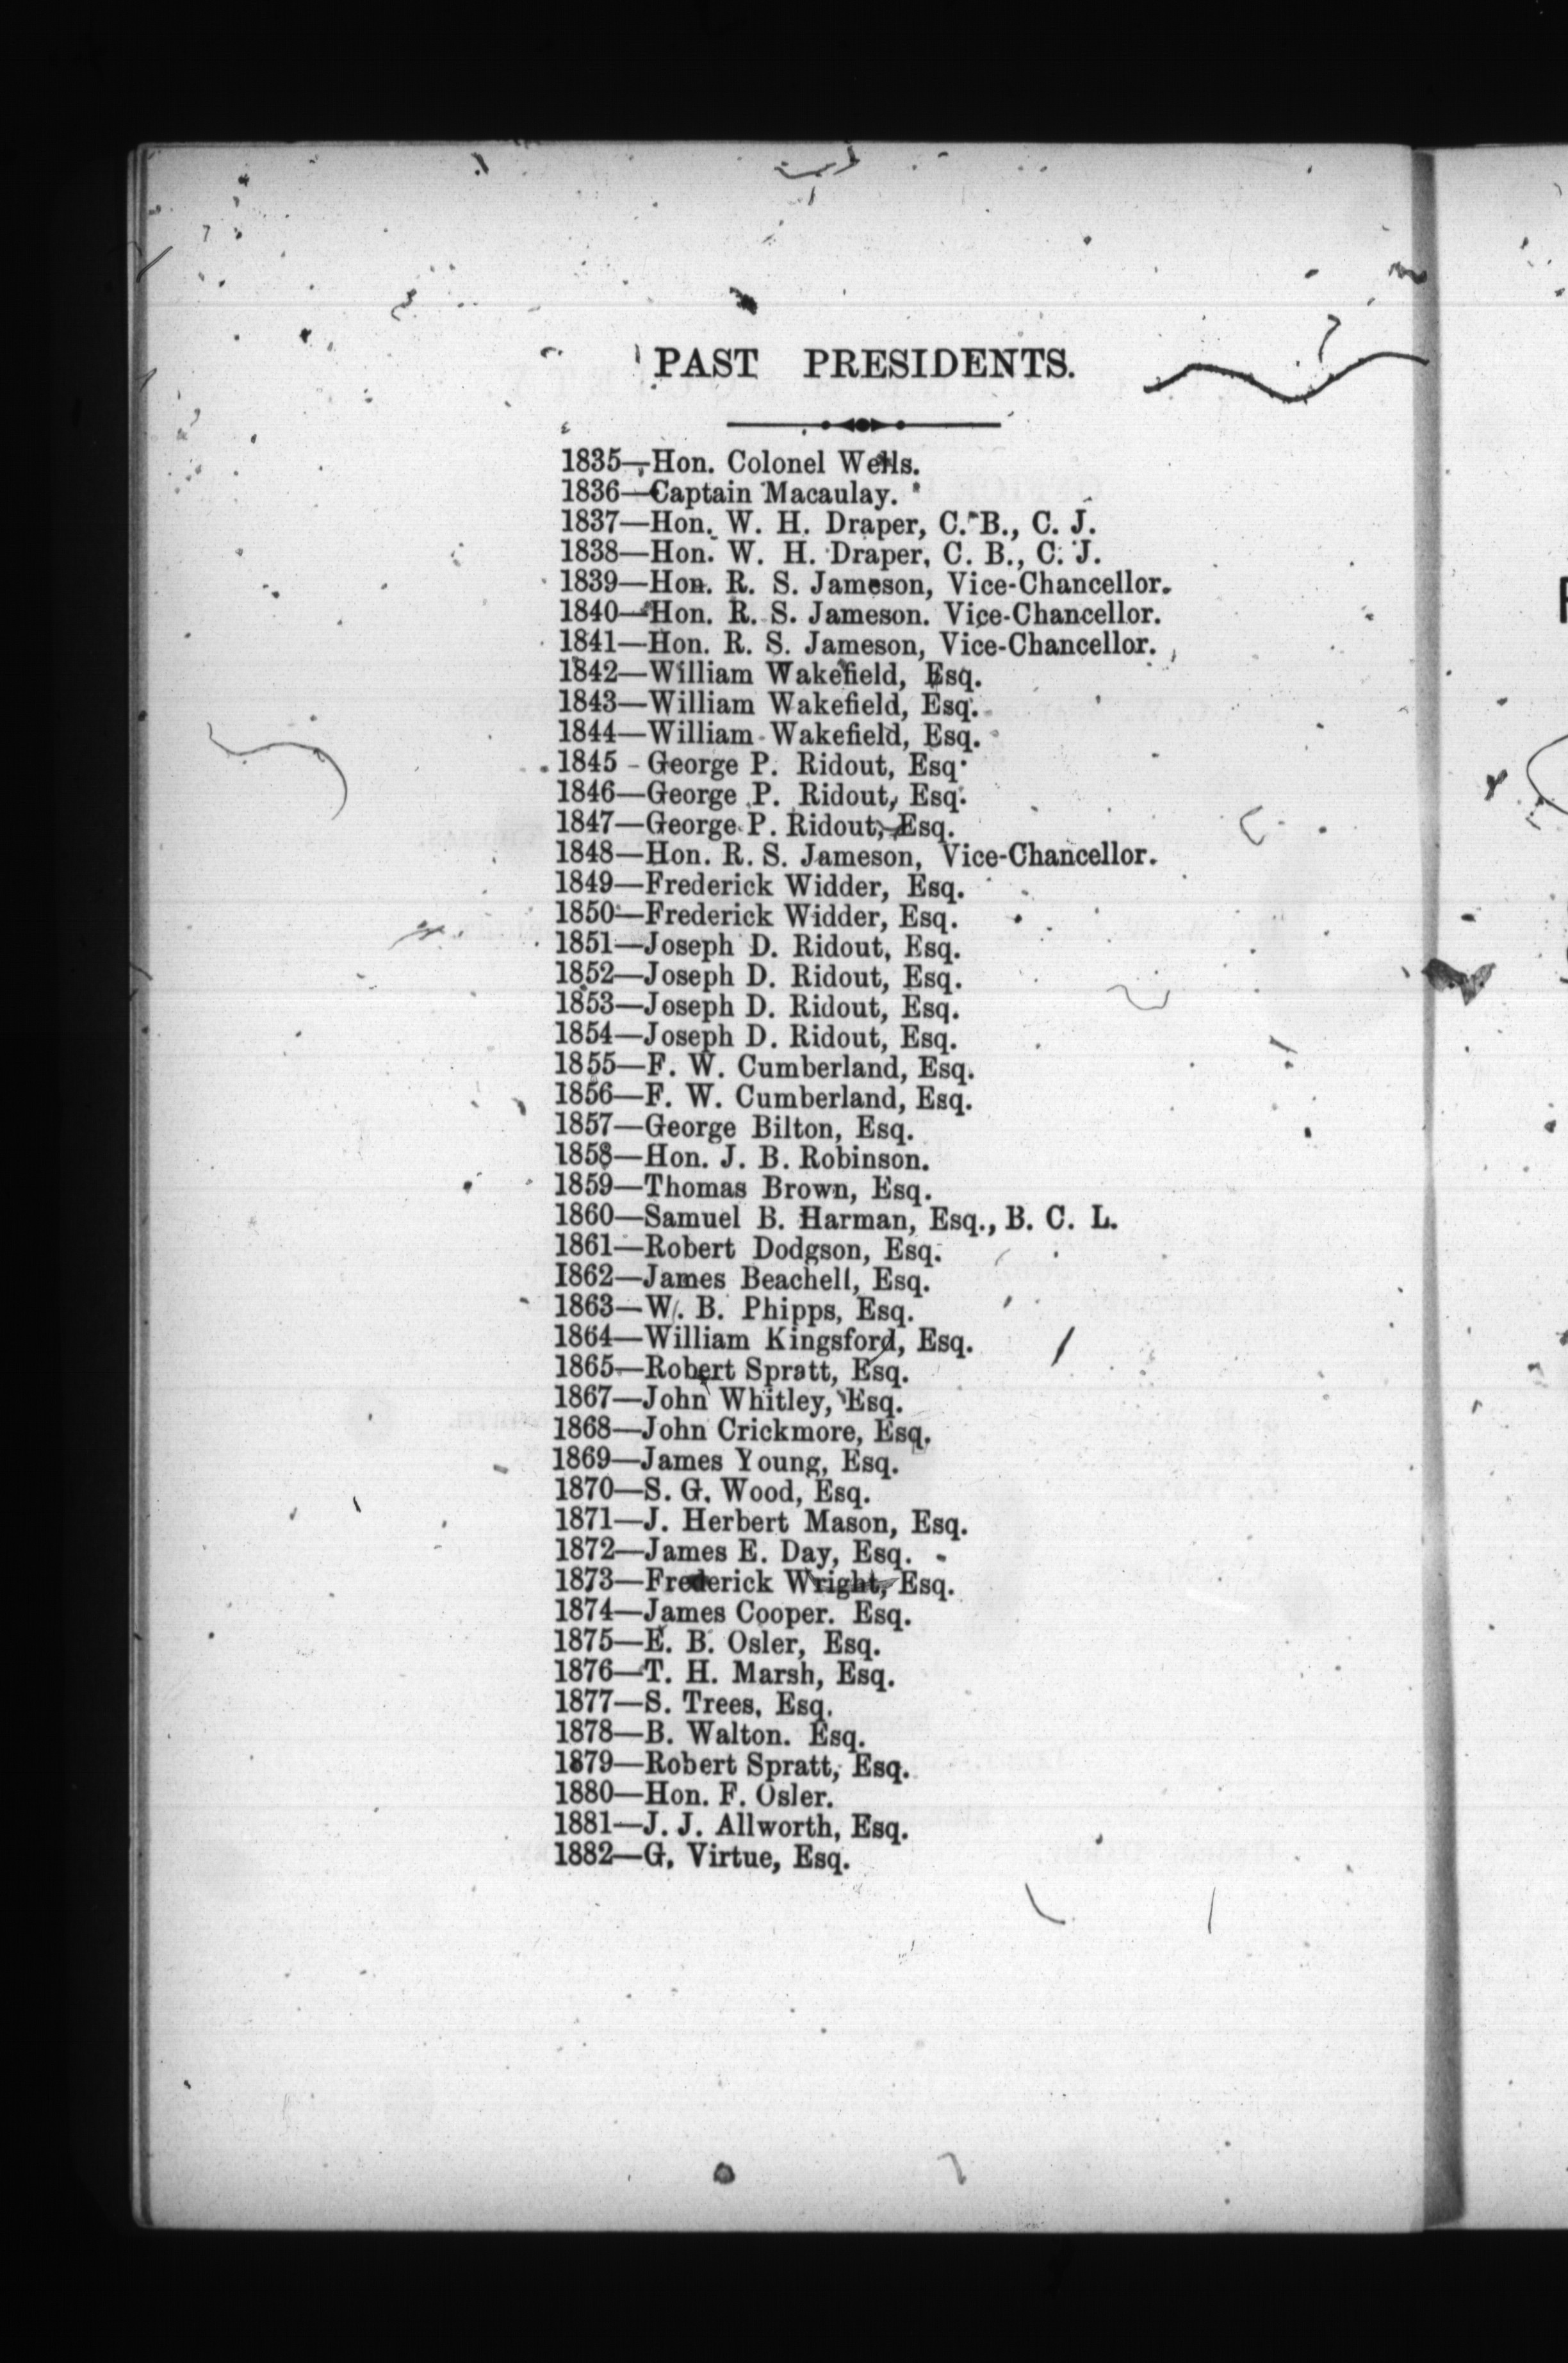 PAST PRESIDENTS.
1835—Hon. Colonel Wells.
1836—Captain Macaulay.
1837—Hon. W. H. Draper, C. B., C. J.
1838—Hon. W. H. Draper, C. B., C. J.
1839—Hon. R. S. Jameson, Vice-Chancellor.
1840—Hon. R. S. Jameson. Vice-Chancellor.
1841—Hon. R. S. Jameson, Vice-Chancellor.
1842—William Wakefield, Esq.
1843—William Wakefield, Esq.
1844—William Wakefield, Esq.
1845 - George P. Ridout, Esq.
1846—George P. Ridout, Esq.
1847—George P. Ridout, Esq.
1848—Hon. R. S. Jameson, Vice-Chancellor.
1849—Frederick Widder, Esq.
1850—Frederick Widder, Esq.
1851—Joseph D. Ridout, Esq.
1852—Joseph D. Ridout, Esq.
1853—Joseph D. Ridout, Esq.
1854—Joseph D. Ridout, Esq.
1855—F. W. Cumberland, Esq.
1856—F. W. Cumberland, Esq.
1857—George Bilton, Esq.
1858—Hon. J. B. Robinson.
1859—Thomas Brown, Esq.
1860—Samuel B. Harman, Esq., B. C. L.
1861—Robert Dodgson, Esq.
1862—James Beachell, Esq.
1863—W. B. Phipps, Esq.
1864—William Kingsford, Esq.
1865—Robert Spratt, Esq.
1867—John Whitley, Esq.
1868—John Crickmore, Esq.
1869—James Young, Esq.
1870—S. G. Wood, Esq.
1871—J. Herbert Mason, Esq.
1872—James E. Day, Esq.
1873—Frederick Wright, Esq.
1874—James Cooper. Esq.
1875—E. B. Osler, Esq.
1876—T. H. Marsh, Esq.
1877—S. Trees, Esq.
1878—B. Walton. Esq.
1879—Robert Spratt, Esq.
1880—Hon. F. Osler.
1881—J. J. Allworth, Esq.
1882—G. Virtue, Esq.